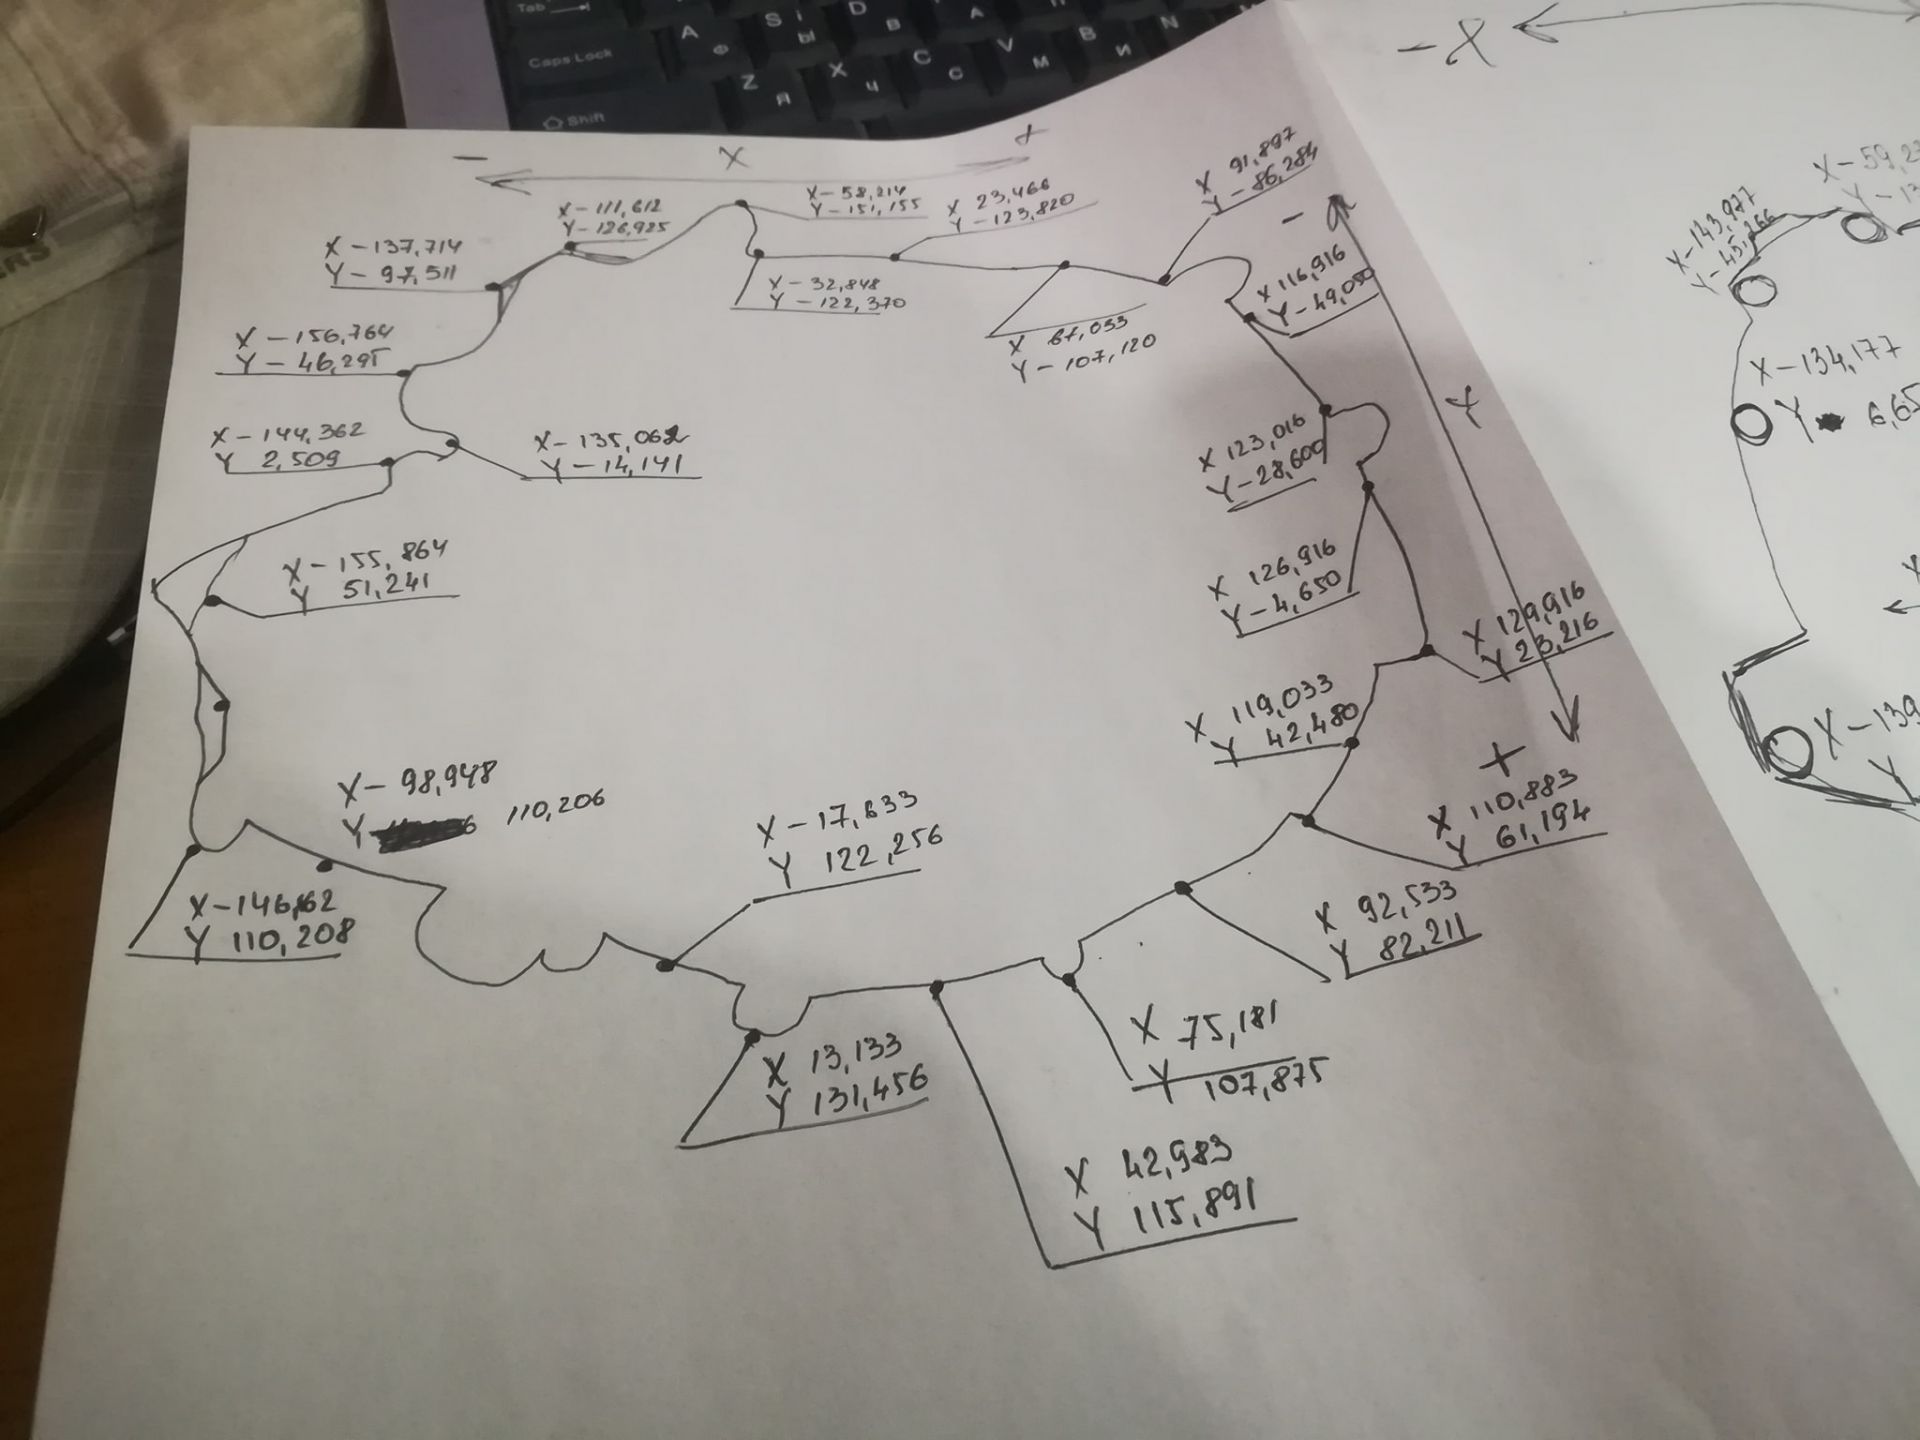 Tab
Caps Lock
Shift
A Ф
S Ы
D В
A
Z Я
X Ч
C С
V М
B И
N
- X +
X-111,612
Y-126,925
X-58,214
Y-151,155
X 23,466
Y-123,820
X 91,897
Y-86,284
X-137,714
Y-97,511
X-32,848
Y-122,370
X 67,033
Y-107,120
X 116,916
Y-49,050
-
Y
+
X-156,764
Y-46,295
X-144,362
Y 2,509
X-135,062
Y-14,141
X 123,016
Y-28,600
X-155,864
Y 51,241
X 126,916
Y-4,650
X 129,916
Y 23,216
X 119,033
Y 42,480
X-98,948
Y 110,206
X-17,633
Y 122,256
X 110,883
Y 61,194
X-146,162
Y 110,208
X 92,533
Y 82,211
X 13,133
Y 131,456
X 75,181
Y 107,875
X 42,983
Y 115,891
-X
X-59,2
Y-1
X-143,977
Y-45,266
X-134,177
Y 6,65
X-139
Y